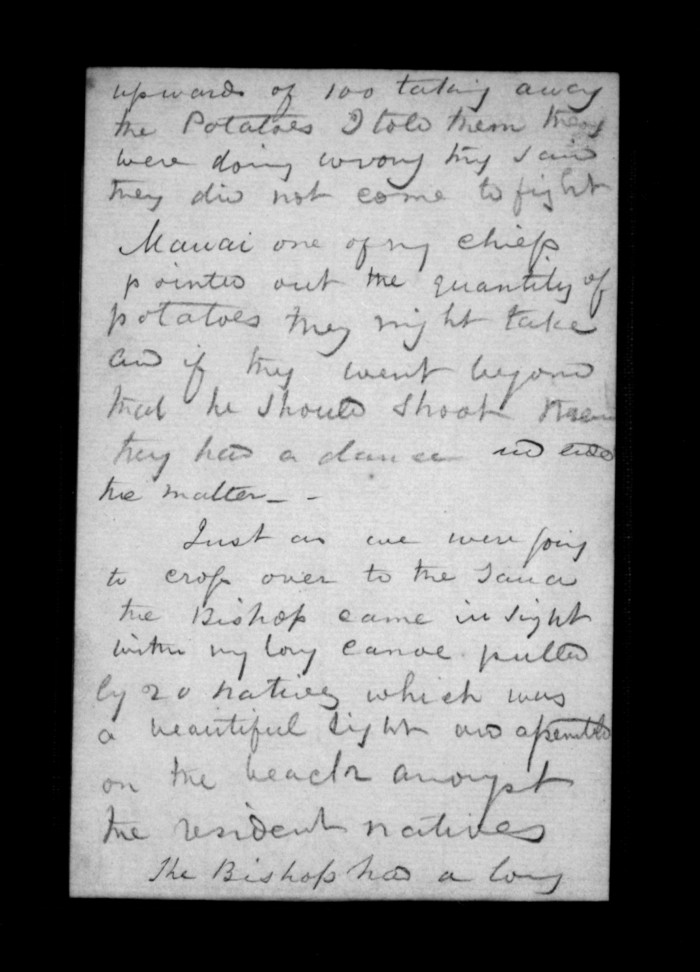 upwards of 100 taking away
the Potatoes I told them they
were doing wrong they said
they did not come to fight
Mawai one of my chiefs
pointed out the quantity of
potatoes they might take
and if they went beyond
that he should shoot them
they had a dance and
the matter - -
Just as we were going
to cross over to the
the Bishop came in sight
with my long canoe pulled
by 20 natives which was
a beautiful sight and assembled
on the beach amongst
the resident natives
The Bishop had a long